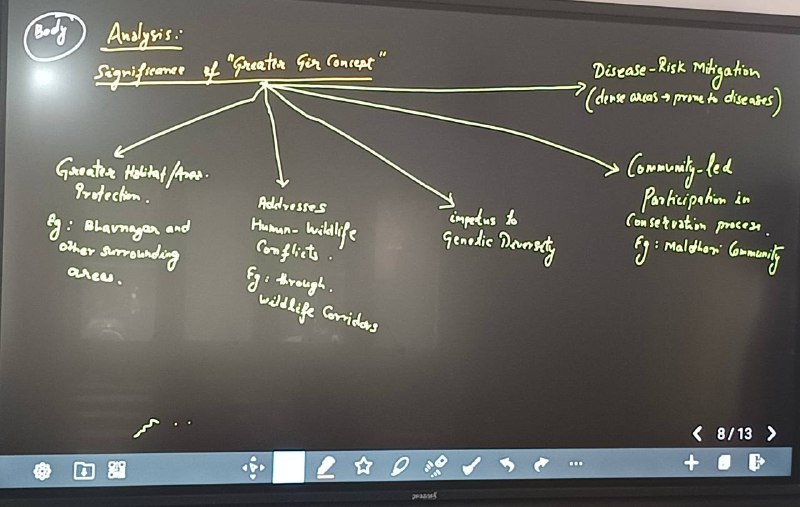 Body
Analysis:
Significance of "Greater Gir Concept"
Disease-Risk Mitigation
(dense areas → prone to diseases)
Greater Habitat/Area
Protection.
Eg: Bhavnagar and
other surrounding
areas.
Addresses
Human-Wildlife
Conflicts.
Eg: through
Wildlife Corridors
impetus to
Genetic Diversity
Community-led
Participation in
Conservation process.
Eg: Maldhari Community
8/13